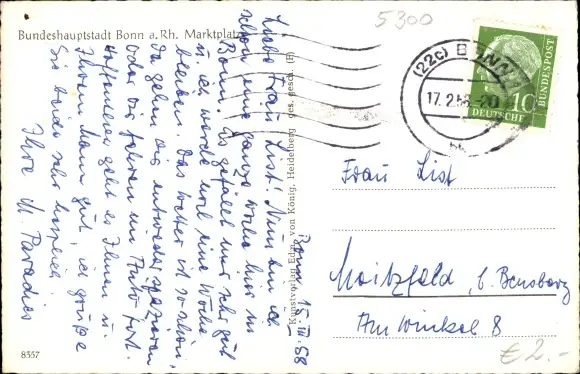 Bundeshauptstadt Bonn a. Rh. Marktplatz
5300
(22c) BONN 1
17.2.58-20
10
DEUTSCHE
BUNDESPOST
Bonn, 15. II. 58
Liebe Frau List! Nun bin ich
schon eine ganze Woche hier in
Bonn. Es gefällt mir sehr gut
u. ich werde noch eine Woche
bleiben. Das Wetter ist so schön,
da gehen wir entweder spazieren
oder wir fahren im Auto fort.
Hoffentlich geht es Ihnen u.
Ihrem Mann gut, ich grüße
Sie beide sehr herzlich
Ihre M. Paradies
Kunstverlag Edm. von König, Heidelberg ges. gesch. (F)
Frau List
Moitzfeld, b. Bensberg
Am Winkel 8
€ 2.-
8357